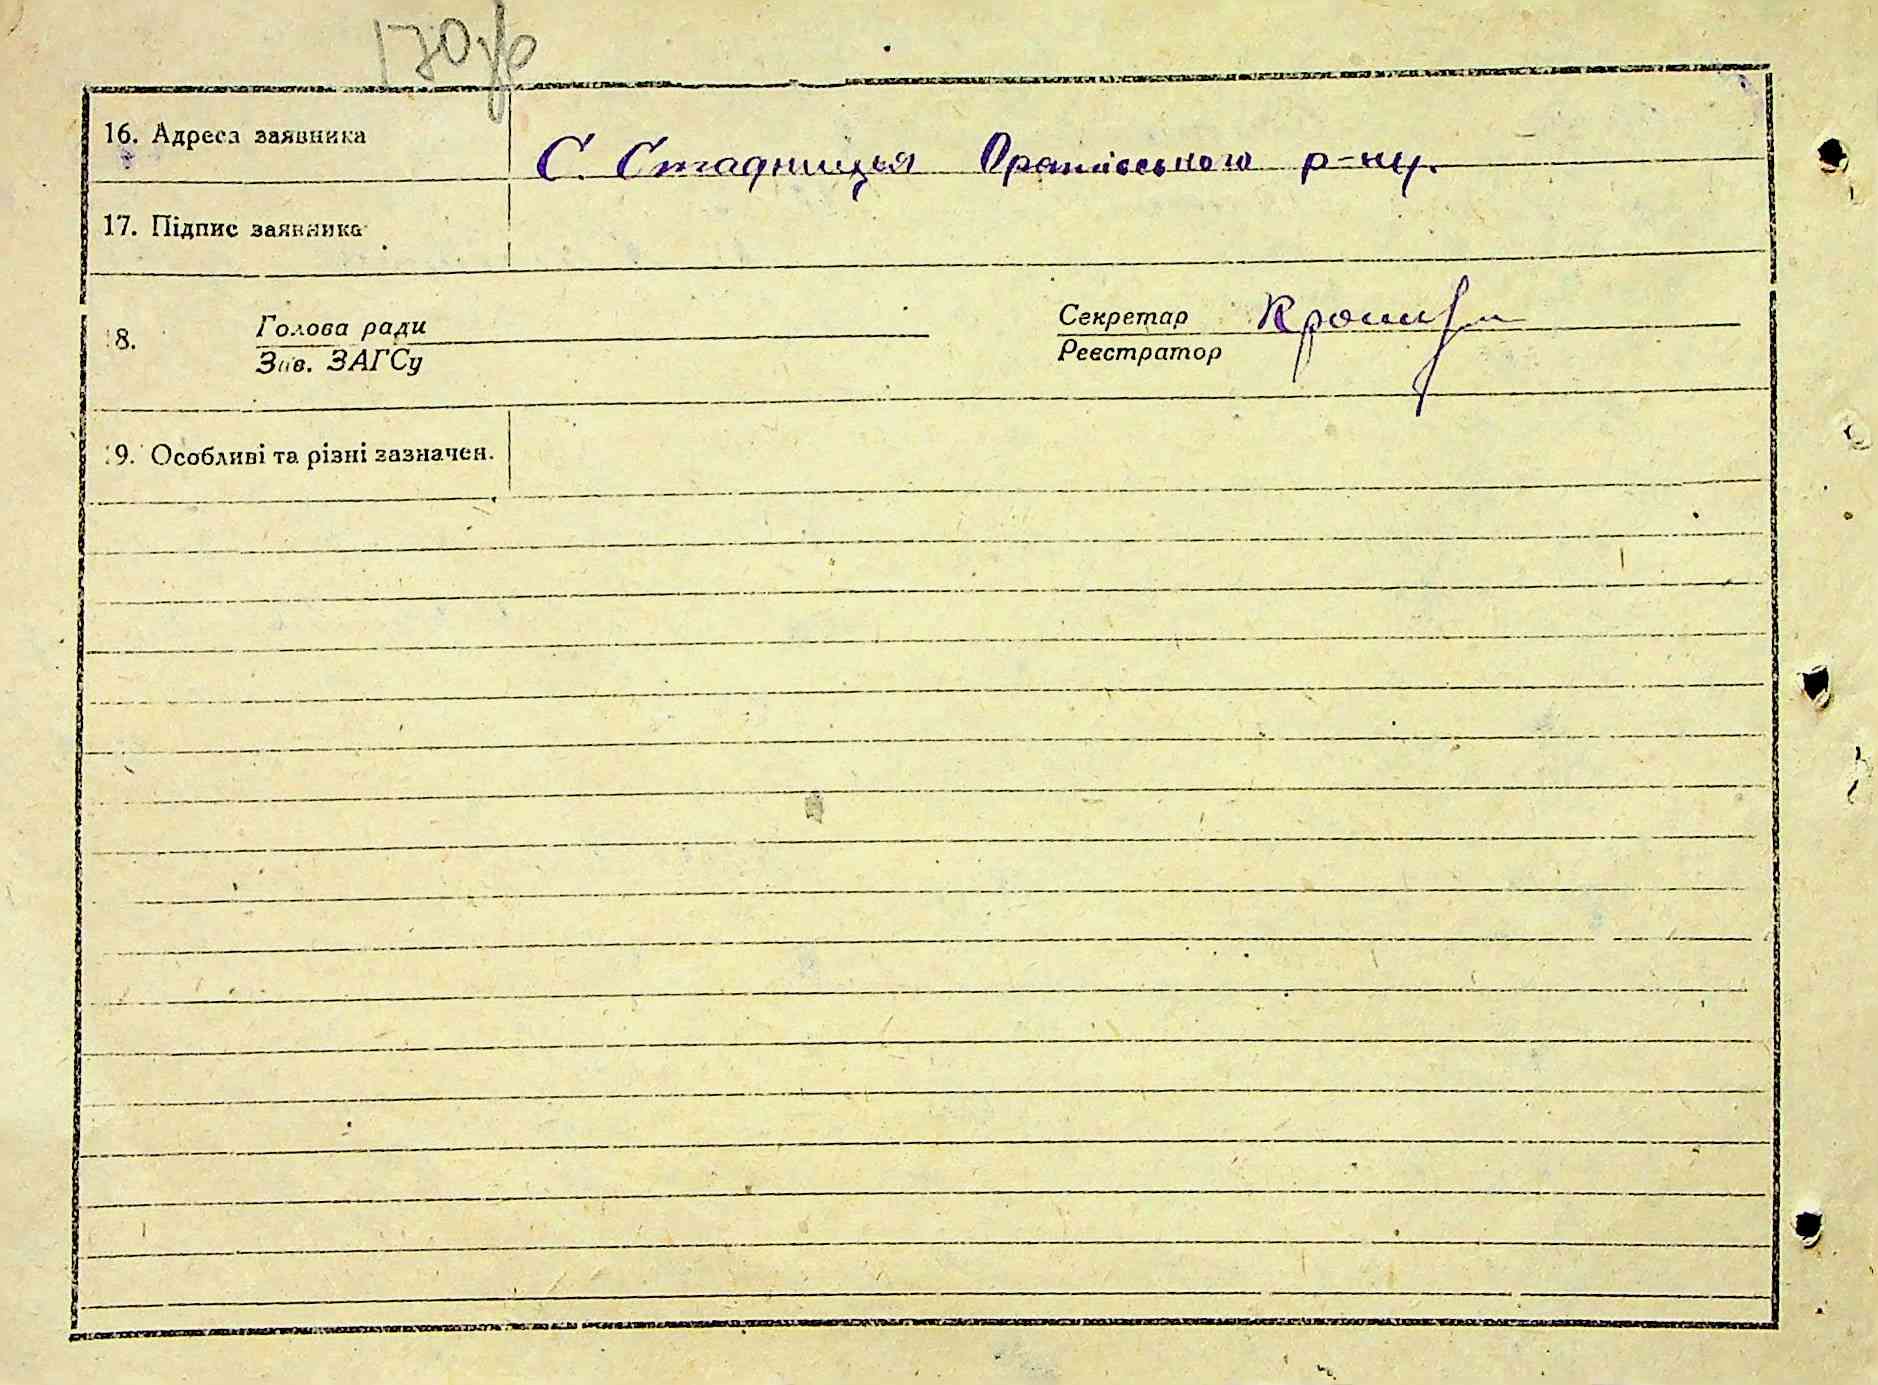 170
16. Адреса заявника С. Стадницья Оратівського р-ну.
17. Підпис заявника
8. Голова ради
Зав. ЗАГСу
Секретар
Реєстратор
9. Особливі та різні зазначен.